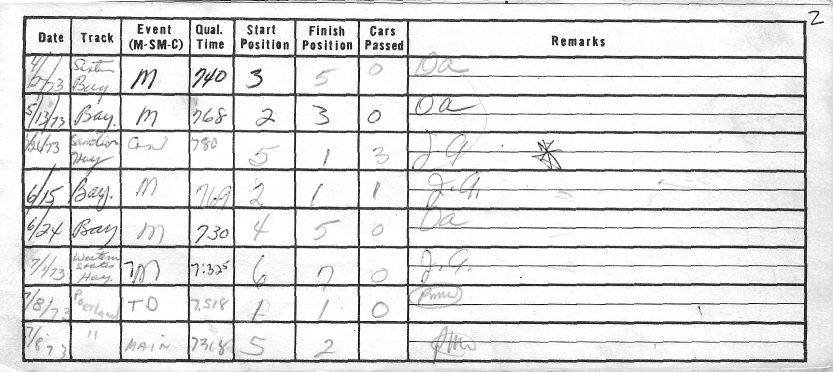 2
Date Track Event (M-SM-C) Qual. Time Start Position Finish Position Cars Passed Remarks
73 Bay M 740 3 5 0 Da
5/13/73 Bay. M 768 2 3 0 Da
73 Hay 780 5 1 3 J.G.
6/15 Bay. M 769 2 1 1 J.G.
6/24 Bay M 730 4 5 0 Da
7/1/73 Western States Hay. M 7:325 6 7 0 J.G.
7/8/73 TD 7.518 1 1 0
7/8 73 " MAIN 7318 5 2